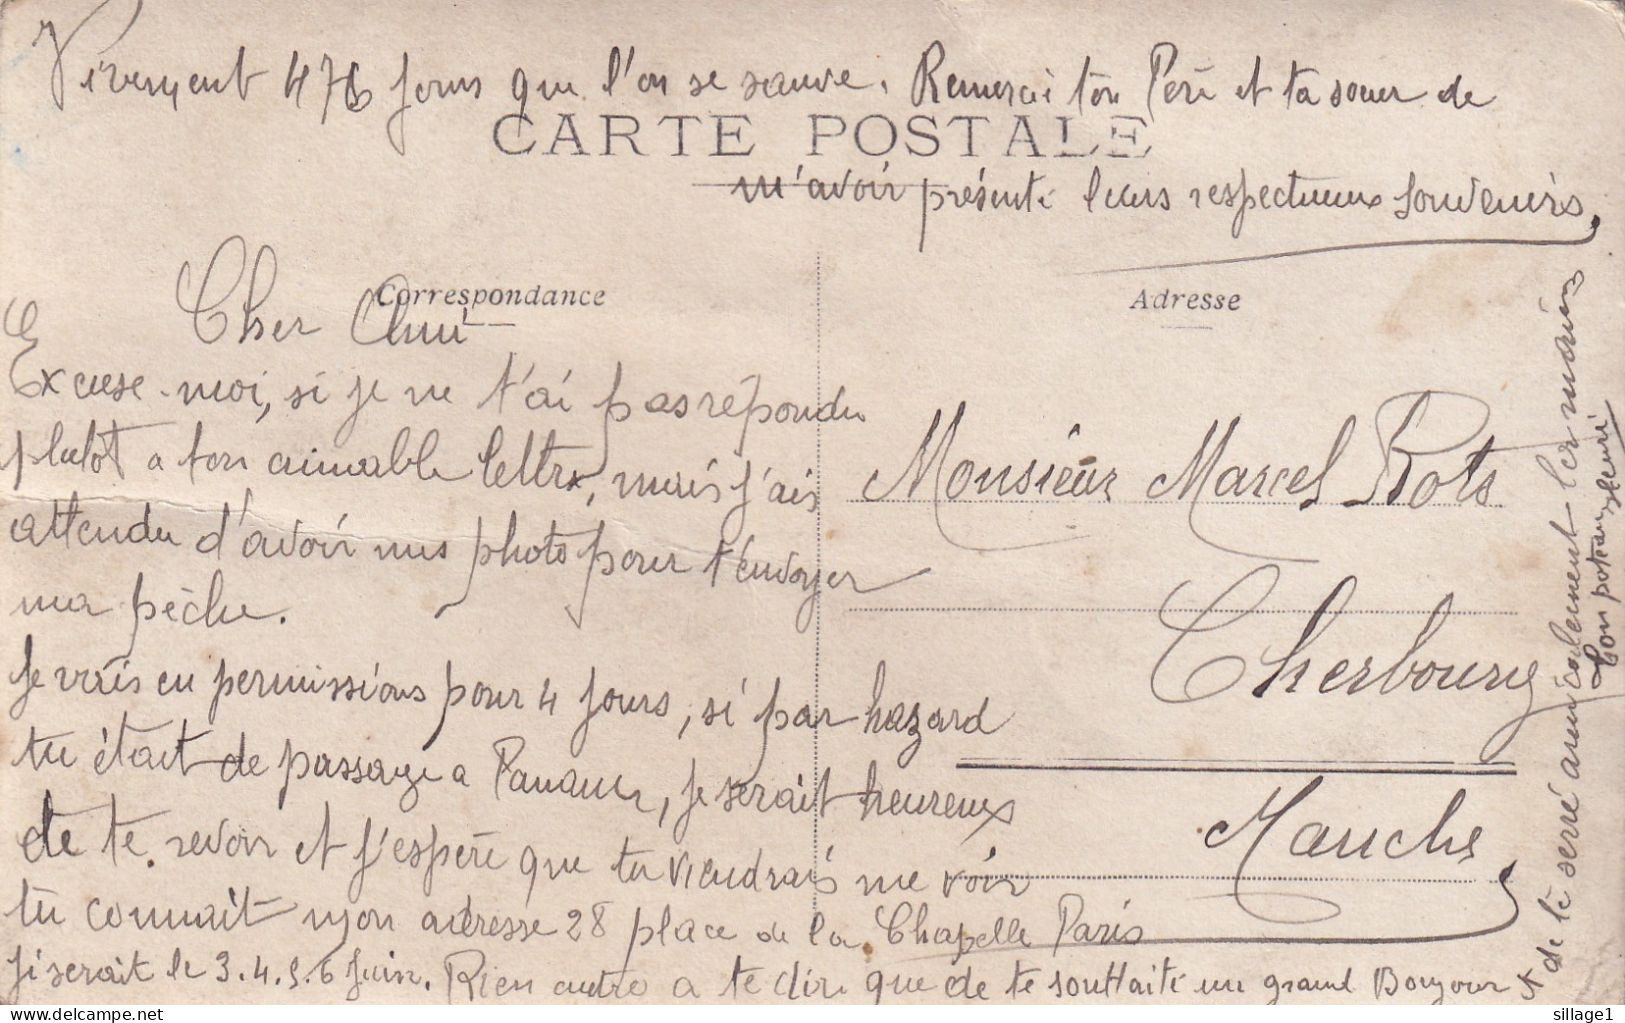 Vivement 476 jours que l'on se sauve. Remercie ton Père et ta soeur de
CARTE POSTALE
m'avoir présenté leurs respectueux souvenirs.
Correspondance
Adresse
Cher Ami
Excuse-moi, si je ne t'ai pas répondu
plutot a ton aimable lettre, mais j'ais
attendu d'avoir mes photos pour t'envoyer
ma pêche.
Je vais en permissions pour 4 jours, si par hazard
tu était de passage a Paname, je serait heureux
de te revoir et j'espère que tu viendrais me voir
tu connait mon adresse 28 place de la Chapelle Paris
J'i serait le 3.4.5.6 Juin. Rien autre a te dire que de te souhaité un grand Bonjour et
Monsieur Marcel Rots
Cherbourg
Manche
de te serré amicalement les mains
Ton poteau Henri
sillage1